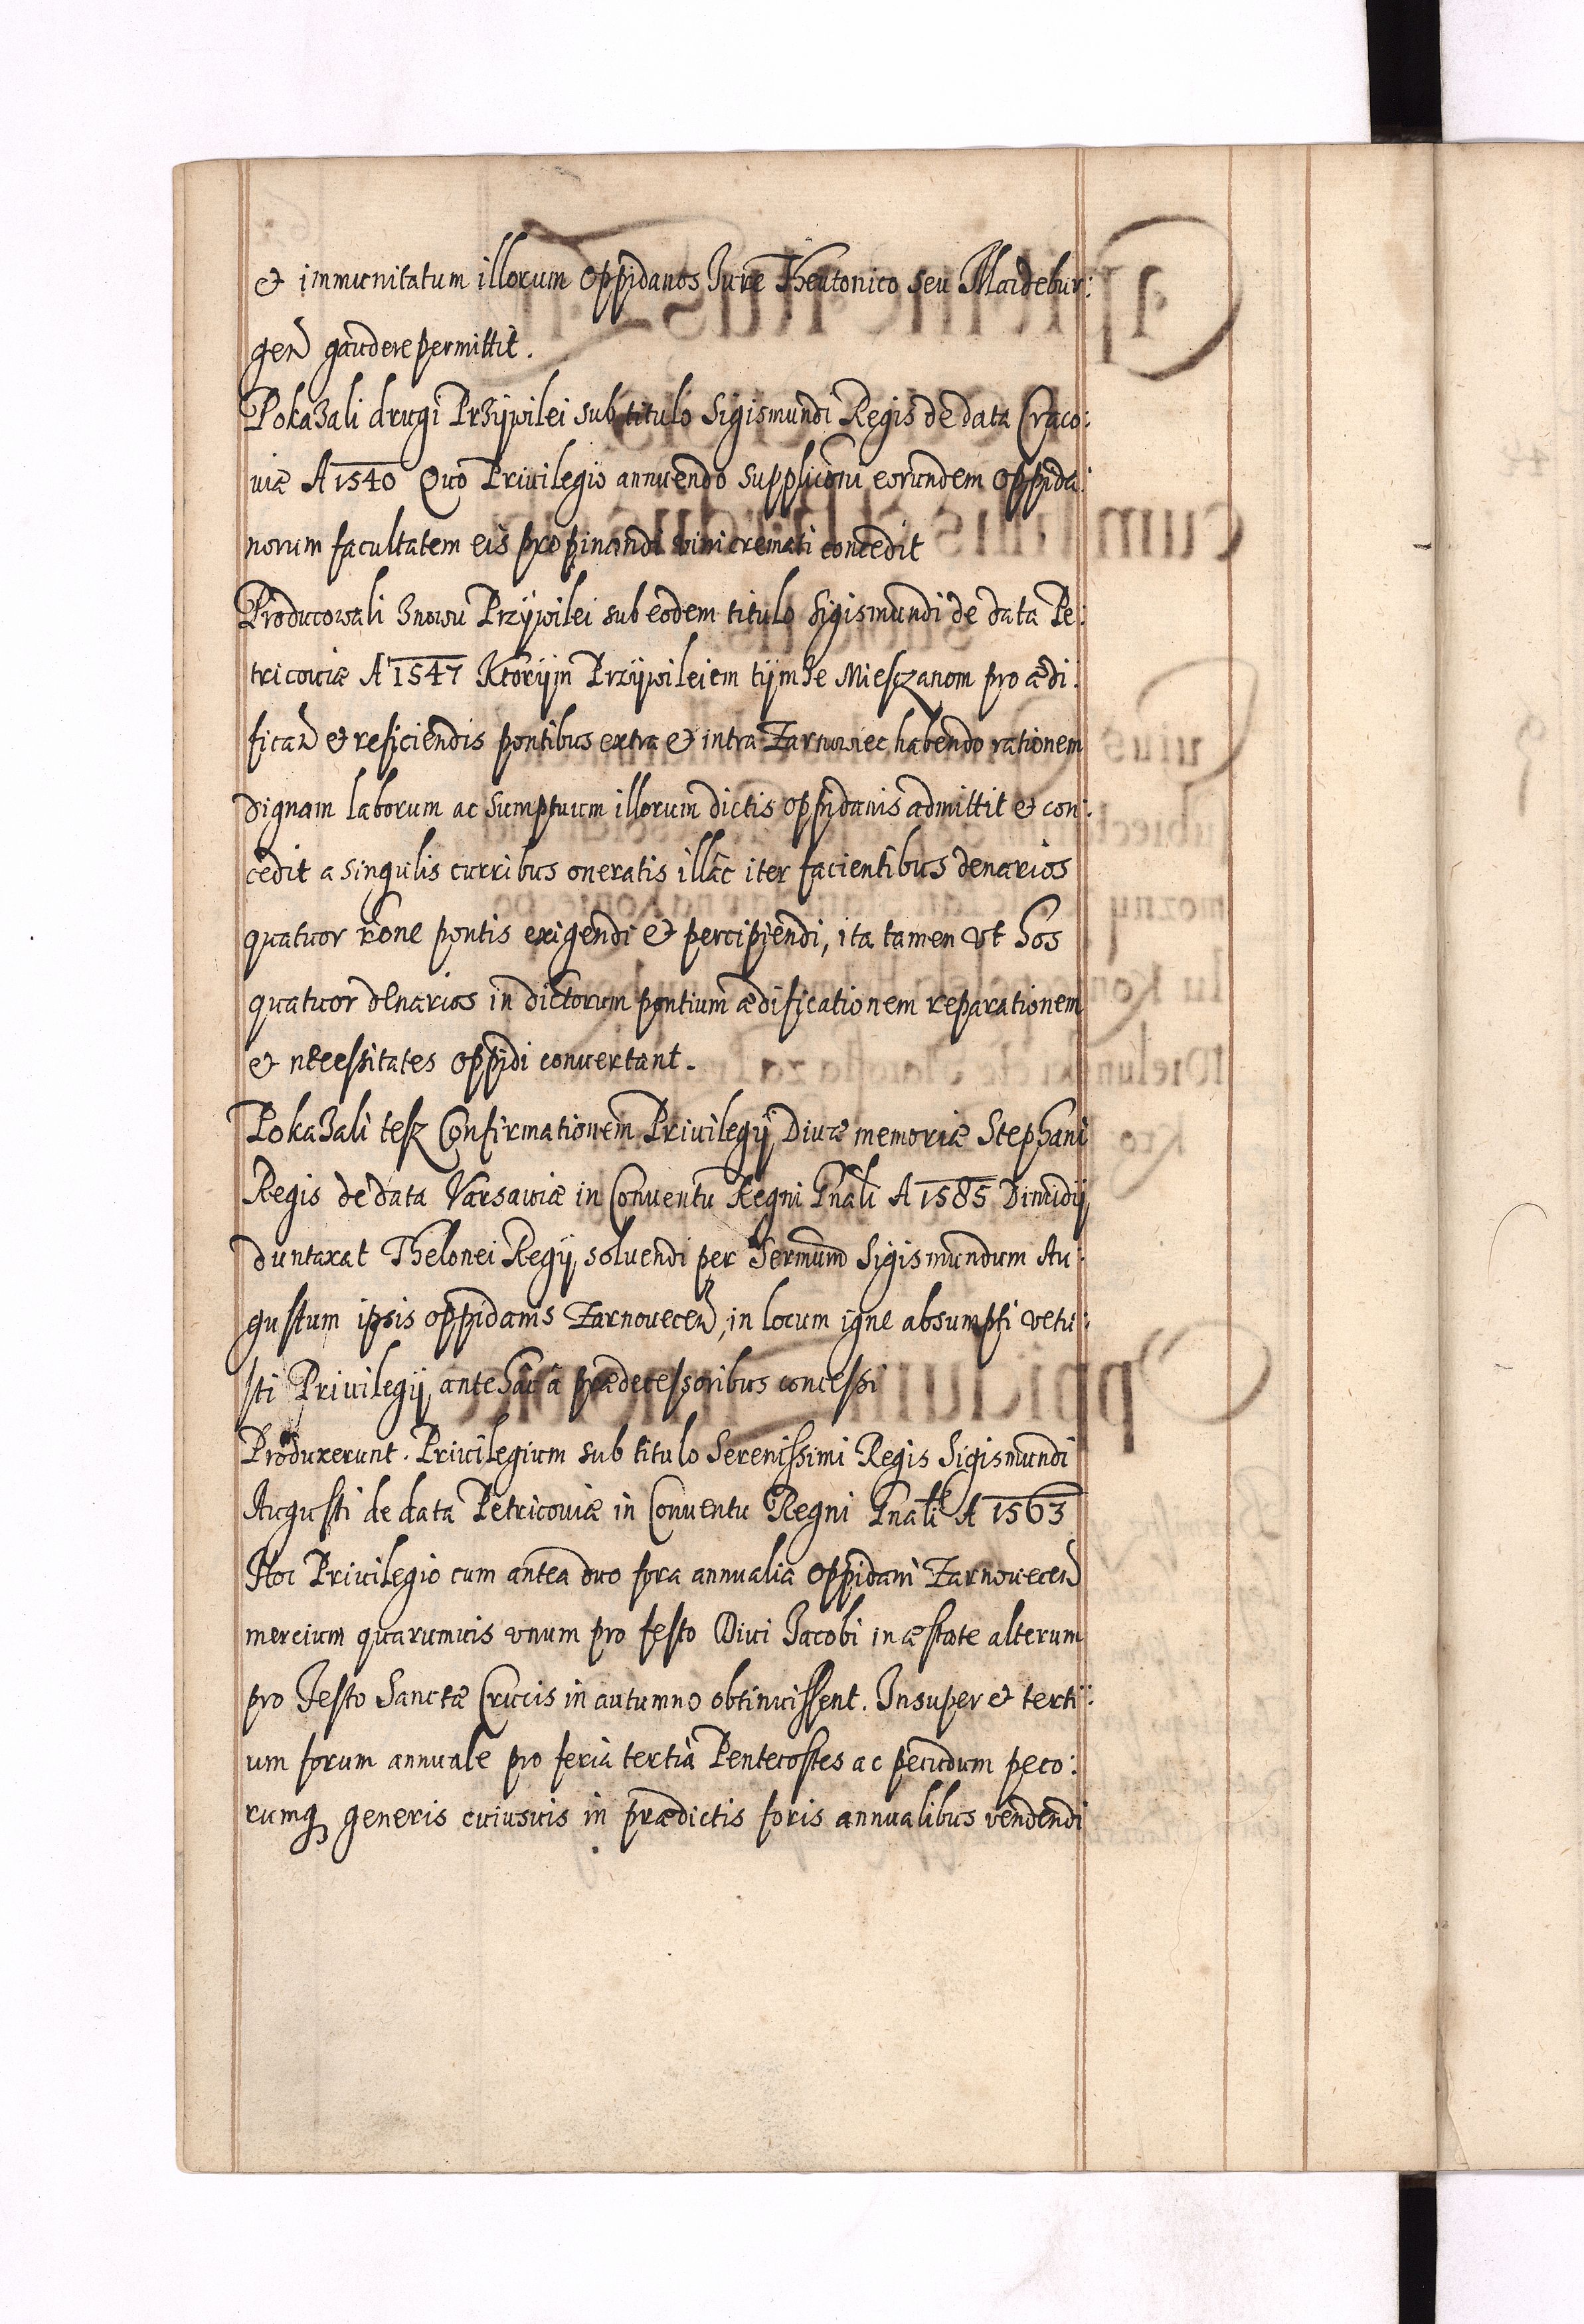 & immunitatum illorum oppidanos Jure Theutonico seu Maidebur:
gen gaudere permittit.
Pokazali drugi Przÿwilei sub titulo Sigismundi Regis de data Craco:
uiæ A 1540 Quo Priuilegio annuendo supplicõni eorundem oppida:
norum facultatem eis propinandi vini cremati concedit
Producowali znowu Przÿwilei sub eodem titulo Sigismundi de data Pe:
tricouiæ A 1547 Ktorÿm Przÿwileiem tÿmze Miesczanom pro ædi:
fican & reficiendis pontibus extra & intra Zarnowiec habendo rationem
dignam laborum ac sumptuum illorum dictis oppidanis admittit & con:
cedit a singulis curribus oneratis illâc iter facientibus denarios
quatuor rõne pontis exigendi & percipiendi, ita tamen vt hos
quatuor denarios in dictorum pontium ædificationem reparationem
& necessitates oppidi conuertant.
Pokazali tesz Confirmationem Priuilegÿ Diuæ memoriæ Stephani
Regis de data Varsauiæ in Conuentu Regni Gnãli A 1585 Dimidÿ
duntaxat Thelonei Regÿ soluendi per Sermum Sigismundum Au:
gustum ipsis oppidanis Zarnouecen, in locum igne absumpti vetu:
sti Priuilegÿ antehâc à prædecessoribus concessi
Produxerunt. Priuilegium sub titulo Serenissimi Regis Sigismundi
Augusti de data Petricouiæ in Conuentu Regni Gnali A 1563
Hoc Priuilegio cum antea duo fora annualia oppidani Zarnouecen
mercium quarumuis vnum pro festo Diui Jacobi in æstate alterum
pro Festo Sanctæ Crucis in autumno obtinuissent. Insuper & terti:
um forum annuale pro feria tertia Pentecostes ac pecudum peco:
rumq generis cuiusuis in prædictis foris annualibus vendendi